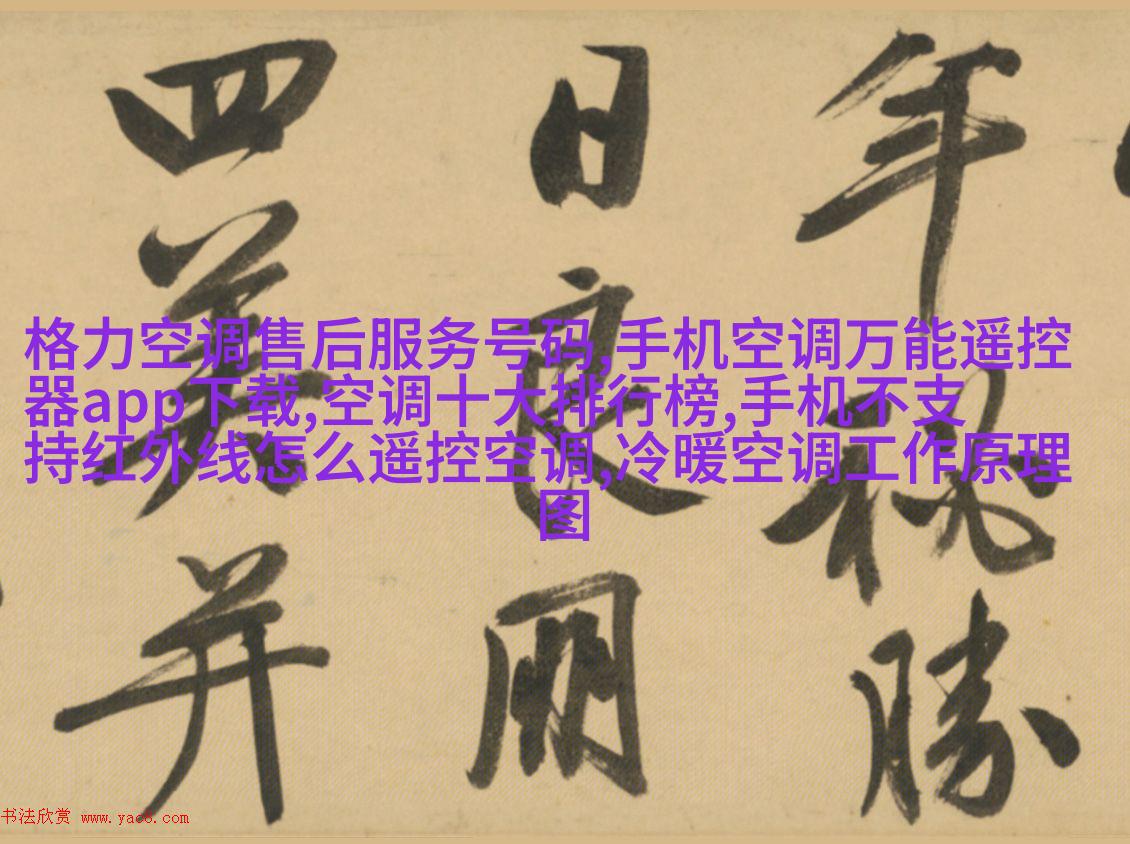 年 勝
日良朋
四美并
格力空调售后服务号码,手机空调万能遥控
器app下载,空调十大排行榜,手机不支
持红外线怎么遥控空调,冷暖空调工作原理
图
书法欣赏 www.yac8.com